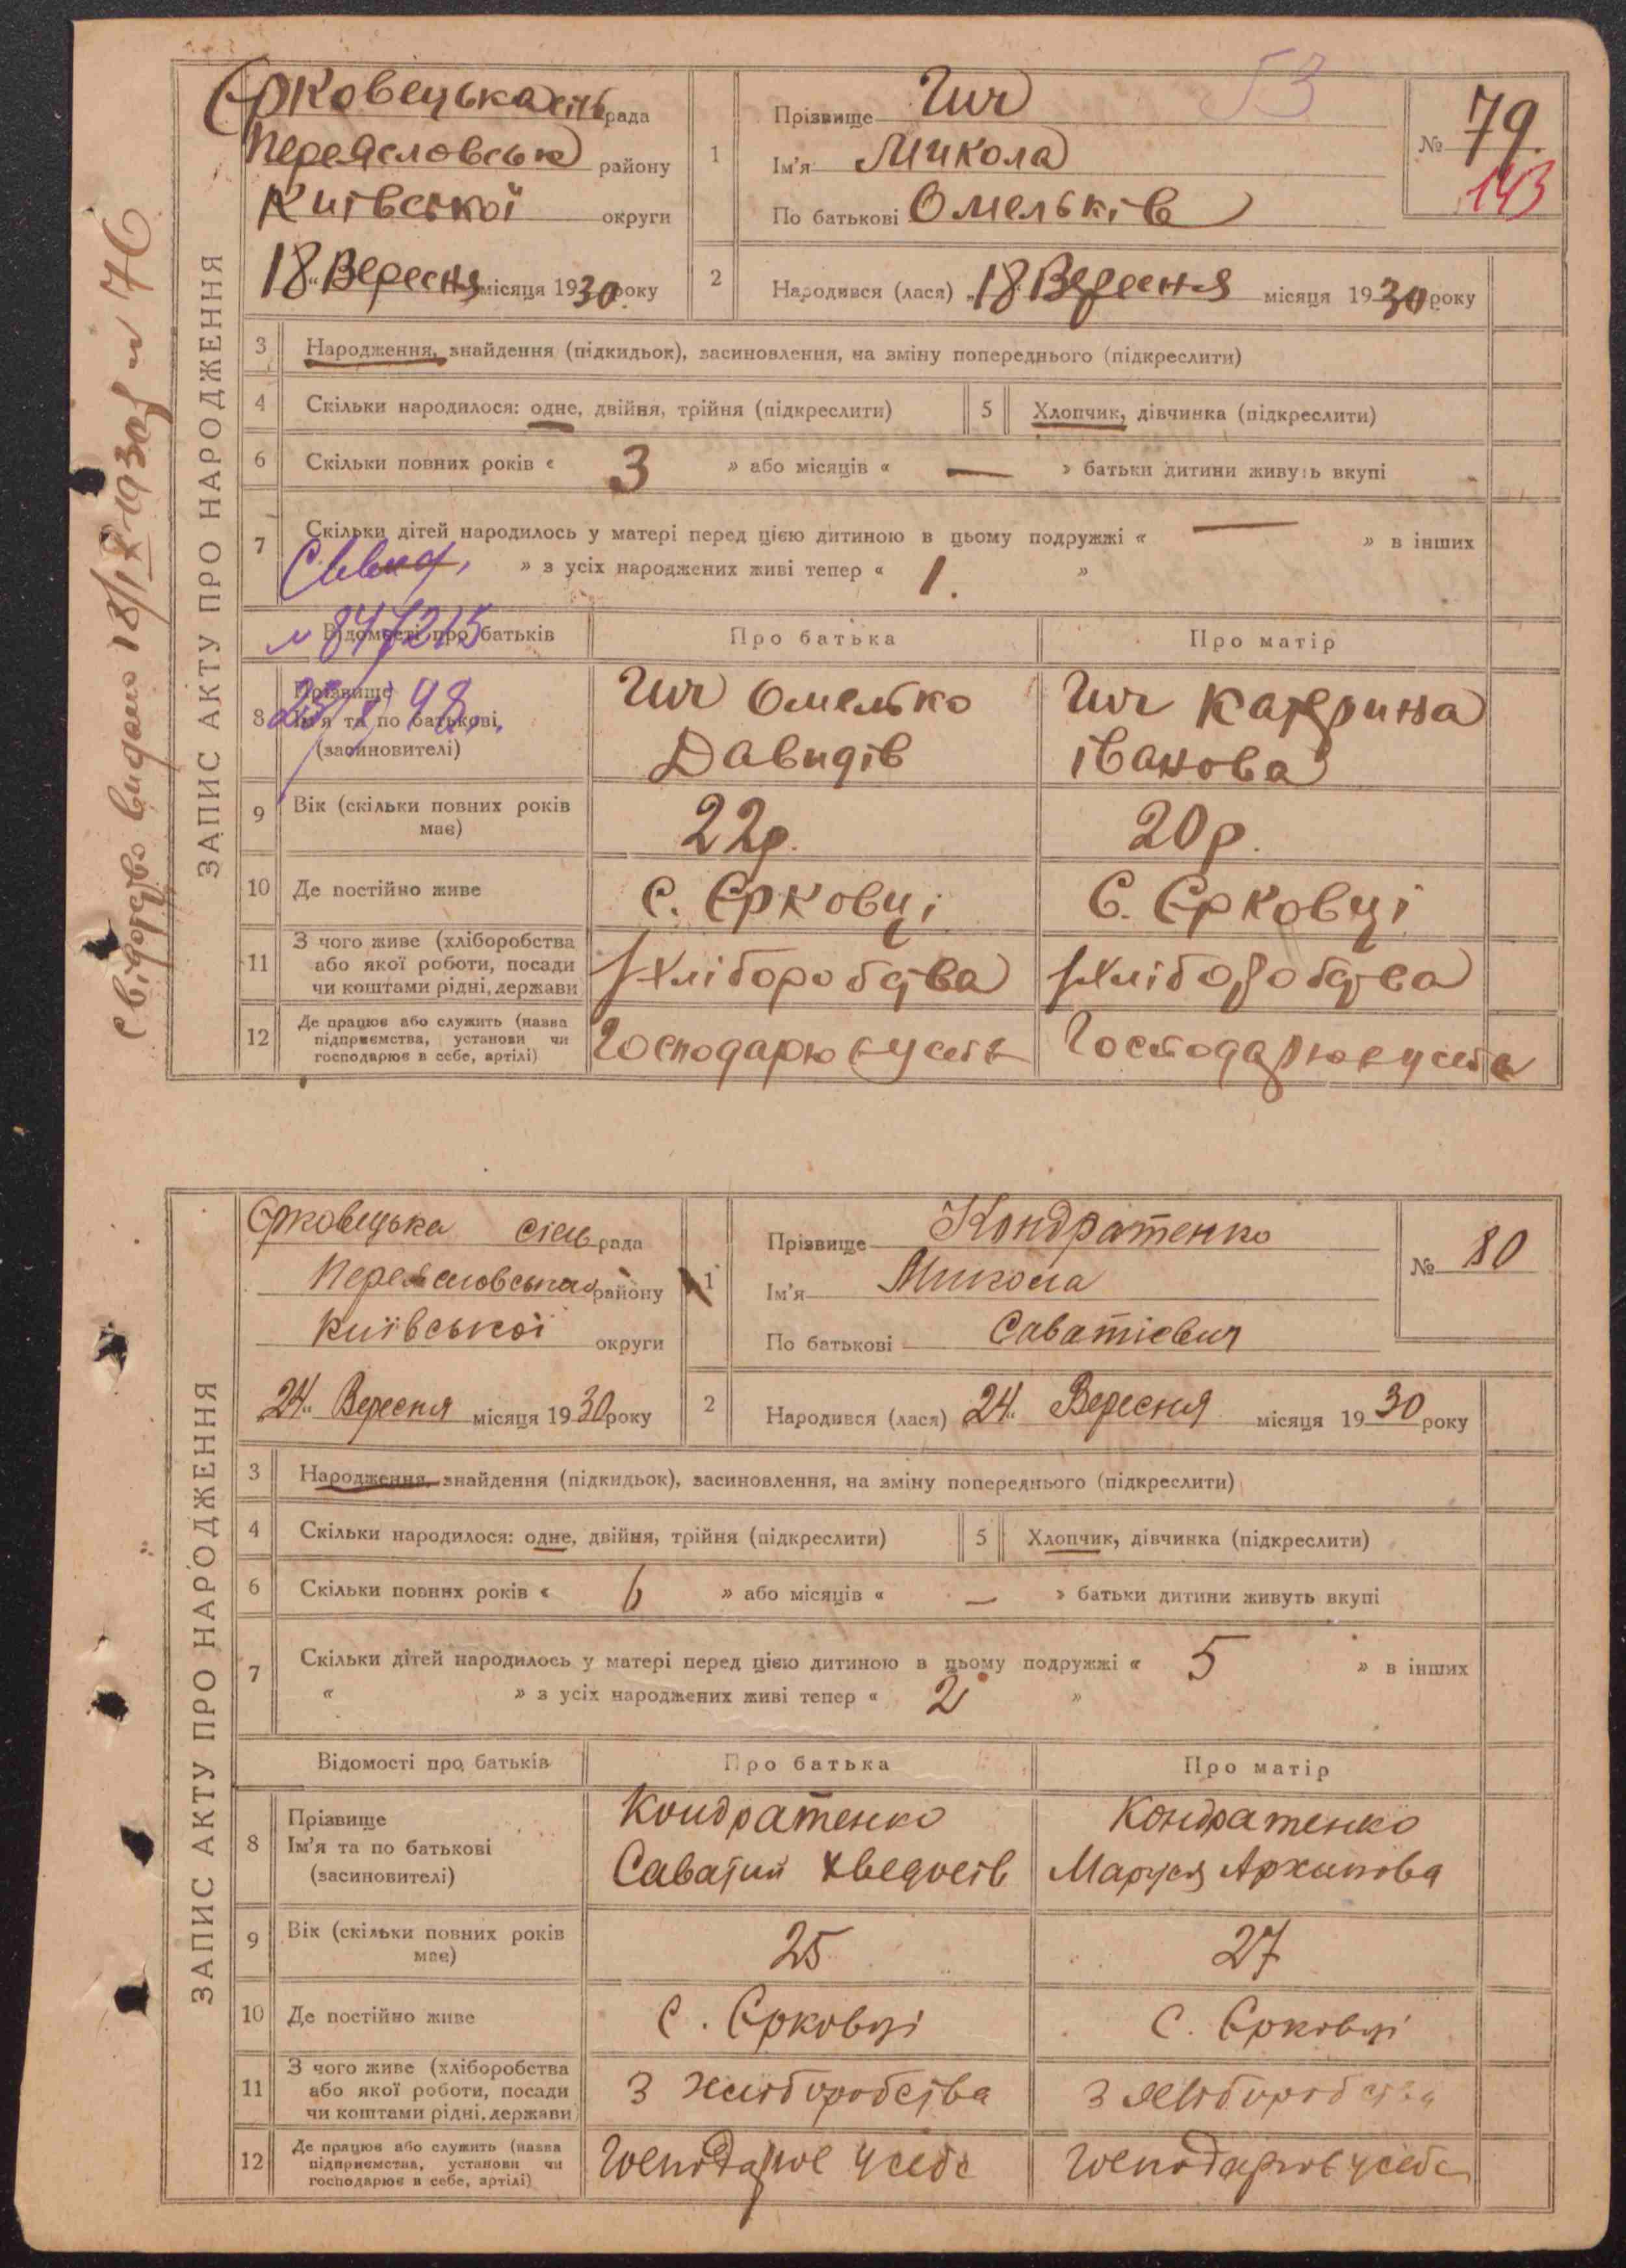 Єрковецька сіль рада
Переясловськ району
Київської округи
18 „ Вересня місяця 1930 року
53
1 Прізвище Гич
Ім'я Микола
По батькові Омельків
№ 79.
143
2 Народився (лася) „18 Вересня місяця 1930 року
ЗАПИС АКТУ ПРО НАРОДЖЕННЯ
Свідоцтво видано 18/IX 1930 р № 76
3 Народження, знайдення (підкидьок), засиновлення, на зміну попереднього (підкреслити)
4 Скільки народилося: одне, двійня, трійня (підкреслити) 5 Хлопчик, дівчинка (підкреслити)
6 Скільки повних років « 3 » або місяців « — » батьки дитини живуть вкупі
7 Скільки дітей народилось у матері перед цією дитиною в цьому подружжі « — » в інших
» з усіх народжених живі тепер « 1. »
№ 847215
Відомості про батьків Про батька Про матір
8 Прізвище
Ім'я та по батькові
(засиновителі)
Гич Омелько
Давидів
Гич Катерина
іванова
9 Вік (скільки повних років
має)
22р. 20р.
10 Де постійно живе с. Єрковці С. Єрковці
11 З чого живе (хліборобства
або якої роботи, посади
чи коштами рідні, держави
Хліборобства Хліборобства
12 Де працює або служить (назва
підприємства, установи чи
господарює в себе, артілі)
Господарює
Єрковецька сіль рада
Переясловська району
Київської округи
24 „ Вересня місяця 1930 року
1 Прізвище Кондратенко
Ім'я Микола
По батькові Саватієвич
№ 80
2 Народився (лася) 24 „ Вересня місяця 1930 року
ЗАПИС АКТУ ПРО НАРОДЖЕННЯ
3 Народження, знайдення (підкидьок), засиновлення, на зміну попереднього (підкреслити)
4 Скільки народилося: одне, двійня, трійня (підкреслити) 5 Хлопчик, дівчинка (підкреслити)
6 Скільки повних років « 6 » або місяців « — » батьки дитини живуть вкупі
7 Скільки дітей народилось у матері перед цією дитиною в цьому подружжі « 5 » в інших
« » з усіх народжених живі тепер « 2 »
Відомості про батьків Про батька Про матір
8 Прізвище
Ім'я та по батькові
(засиновителі)
Кондратенко
Саватий
Кондратенко
Маруся Архипова
9 Вік (скільки повних років
має)
25 27
10 Де постійно живе с. Єрковці с. Єрковці
11 З чого живе (хліборобства
або якої роботи, посади
чи коштами рідні, держави
З хліборобства З хліборобства
12 Де працює або служить (назва
підприємства, установи чи
господарює в себе, артілі)
Господарює у себе Господарює у себе